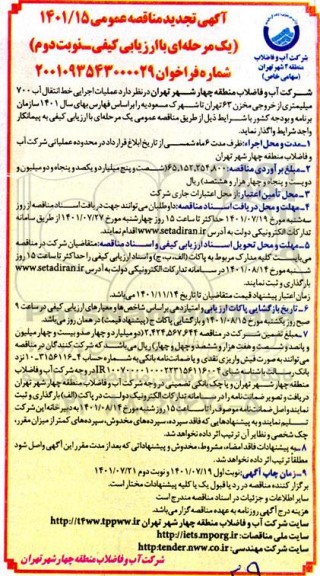 آگهی تجدید مناقصه عمومی ۱۴۰۱/۱۵
(یک مرحله‌ای با ارزیابی کیفی ـ نوبت دوم)
شماره فراخوان ۲۰۰۱۰۹۳۵۴۳۰۰۰۰۲۹
شرکت آب و فاضلاب
منطقه ۴ شهر تهران
(سهامی خاص)
شرکت آب و فاضلاب منطقه چهار شهر تهران در نظر دارد عملیات اجرایی خط انتقال آب ۷۰۰
میلیمتری از خروجی مخزن ۶۳ تهران تا شهرک مسعودیه را براساس فهارس بهای سال ۱۴۰۱ سازمان
برنامه و بودجه کشور با شرایط ذیل از طریق مناقصه عمومی یک مرحله‌ای با ارزیابی کیفی به پیمانکار
واجد شرایط واگذار نماید.
۱ـ مدت و محل اجراء: ظرف مدت ۶ ماه شمسی از تاریخ ابلاغ قرارداد در محدوده عملیاتی شرکت آب
و فاضلاب منطقه چهار شهر تهران
۲ـ مبلغ برآوردی مناقصه: ۶۵،۱۵۲،۲۵۴،۸۰۰ (شصت و پنج میلیارد و یکصد و پنجاه و دو میلیون و
دویست و پنجاه و چهار هزار و هشتصد) ریال
۳ـ محل تأمین اعتبار: از محل اعتبارات جاری شرکت
۴ـ مهلت و محل دریافت اسناد مناقصه: داوطلبان می‌توانند جهت دریافت اسناد مناقصه از روز
سه‌شنبه مورخ ۱۴۰۱/۰۷/۱۹ حداکثر تا ساعت ۱۵ روز چهارشنبه مورخ ۱۴۰۱/۰۷/۲۷ از طریق سامانه
تدارکات الکترونیکی دولت به آدرس www.setadiran.ir اقدام نمایند.
۵ـ مهلت و محل تحویل اسناد ارزیابی کیفی و اسناد مناقصه: متقاضیان شرکت در مناقصه
می‌بایست کلیه مدارک مربوط به پاکات (الف، ب، ج) و اسناد ارزیابی کیفی را حداکثر تا ساعت ۱۵ روز
شنبه مورخ ۱۴۰۱/۰۸/۱۴ در سامانه تدارکات الکترونیکی دولت به آدرس www.setadiran.ir
بارگذاری و ثبت نمایند.
زمان اعتبار پیشنهاد قیمت متقاضیان تا تاریخ ۱۴۰۱/۱۱/۱۴ می‌باشد.
۶ـ تاریخ بازگشایی پاکات ارزیابی و امتیازدهی براساس شاخص‌ها و معیارهای ارزیابی کیفی در ساعت ۹
صبح روز یکشنبه مورخ ۱۴۰۱/۰۸/۱۵ و بازگشایی پاکات ج (پیشنهاد قیمت) در همان روز می‌باشد.
۷ـ مبلغ تضمین شرکت در مناقصه ۲،۴۲۴،۵۶۷،۶۴۴ (دو میلیارد و چهار صد و بیست و چهار میلیون
و پانصد و شصت و هفت هزار و ششصد و چهل و چهار) ریال می‌باشد که شرکت کنندگان در مناقصه
می‌توانند به صورت فیش واریزی نقدی و یا ضمانتنامه بانکی به شماره حساب
در وجه شرکت آب و فاضلاب
منطقه چهار شهر تهران و یا چک بانکی تضمینی در وجه شرکت آب و فاضلاب منطقه چهار شهر تهران
دریافت و تصویر ضمانتنامه را در سامانه تدارکات الکترونیک دولت در پاکت (الف) بارگذاری و ثبت
نمایند و اصل ضمانتنامه موصوف را تا ساعت ۱۵ روز شنبه مورخ ۱۴۰۱/۰۸/۱۴ به دبیرخانه این شرکت
تسلیم نمایند و به پیشنهادهایی که فاقد سپرده، سپرده‌های مخدوش، سپرده‌های کمتر از میزان مقرر،
چک شخصی و نظایر آن ترتیب اثر داده نخواهد شد.
۸ـ به پیشنهادات فاقد امضاء، مشروط، مخدوش و پیشنهاداتی که بعد از مدت مقرر این آگهی واصل شود
مطلقاً ترتیب اثر داده نخواهد شد.
۹ـ زمان چاپ آگهی: نوبت اول ۱۴۰۱/۰۷/۱۹ و نوبت دوم ۱۴۰۱/۰۷/۲۱
برگزار کننده مناقصه در رد یا قبول یک یا کلیه پیشنهادات مختار است.
سایر اطلاعات و جزئیات در اسناد مناقصه مندرج است
هزینه درج آگهی روزنامه به عهده مناقصه گزار می‌باشد.
سایت شرکت آب و فاضلاب منطقه چهار شهر تهران http://t4ww.tppww.ir
سایت ملی مناقصات: http://iets.mporg.ir
سایت شرکت مهندسی: http:tender.nww.co.ir
شرکت آب و فاضلاب منطقه چهار شهر تهران